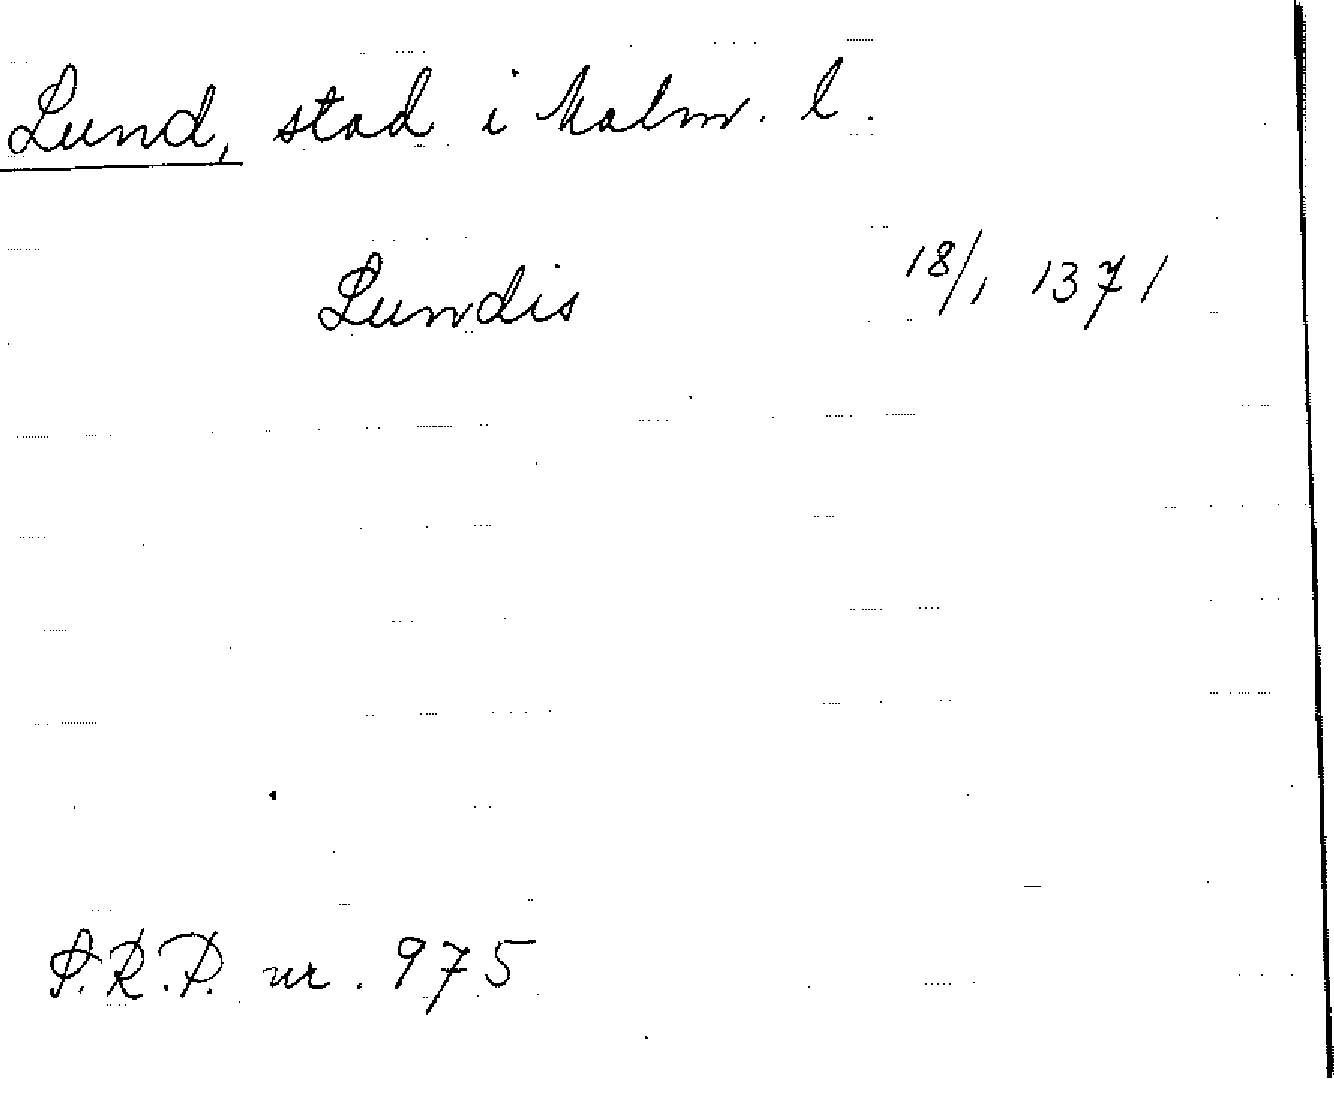 Lund, stad i Malm. l.
Lundis 18/1 1371
S.R.P. nr. 975